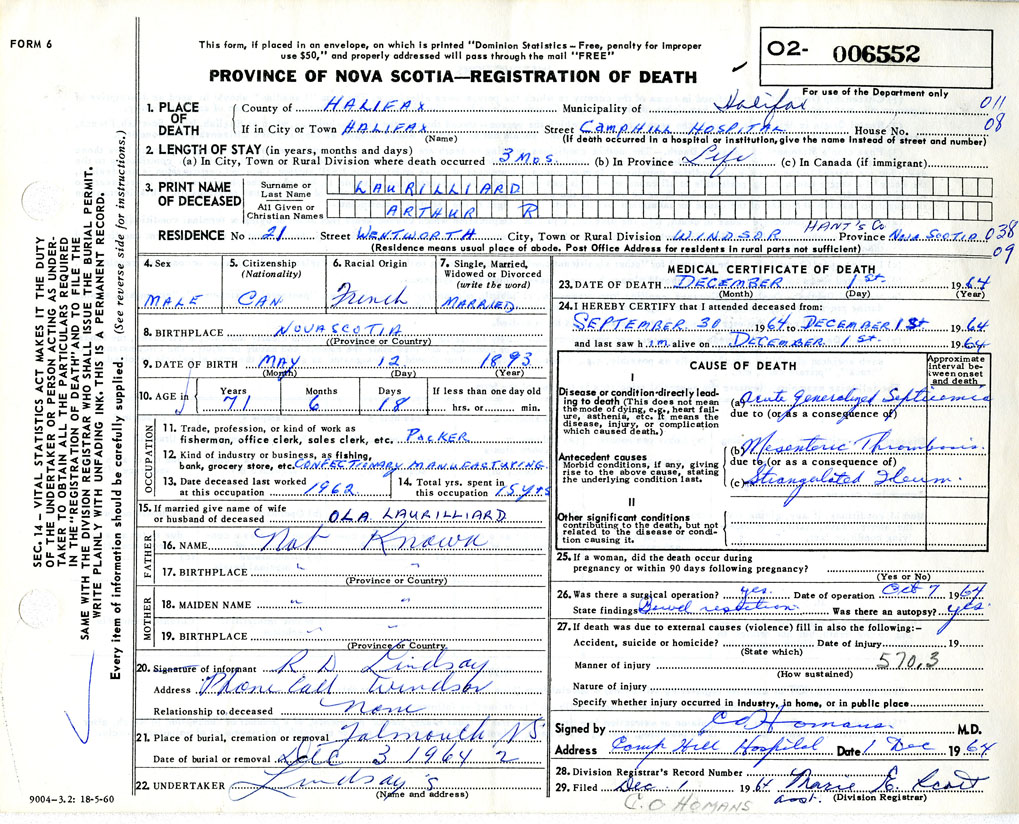 FORM 6
This form, if placed in an envelope, on which is printed "Dominion Statistics – Free, penalty for improper
use $50," and properly addressed will pass through the mail "FREE"
PROVINCE OF NOVA SCOTIA—REGISTRATION OF DEATH
O2- 006552
For use of the Department only
SEC. 14 – VITAL STATISTICS ACT MAKES IT THE DUTY
OF THE UNDERTAKER OR PERSON ACTING AS UNDER-
TAKER TO OBTAIN ALL THE PARTICULARS REQUIRED
IN THE "REGISTRATION OF DEATH" AND TO FILE THE
SAME WITH THE DIVISION REGISTRAR WHO SHALL ISSUE THE BURIAL PERMIT.
WRITE PLAINLY WITH UNFADING INK. THIS IS A PERMANENT RECORD.
Every item of information should be carefully supplied. (See reverse side for instructions.)
1. PLACE OF DEATH
County of HALIFAX Municipality of Halifax 011
If in City or Town HALIFAX Street CAMP HILL HOSPITAL House No. 08
(Name) (If death occurred in a hospital or institution, give the name instead of street and number)
2. LENGTH OF STAY (in years, months and days)
(a) In City, Town or Rural Division where death occurred 3 Mos. (b) In Province Life (c) In Canada (if immigrant)
3. PRINT NAME OF DECEASED
Surname or Last Name LAURILLIARD
All Given or Christian Names ARTHUR R
HANT'S Co
RESIDENCE No 21 Street WENTWORTH City, Town or Rural Division WINDSOR Province NOVA SCOTIA 038
(Residence means usual place of abode. Post Office Address for residents in rural parts not sufficient) 09
4. Sex MALE
5. Citizenship (Nationality) CAN
6. Racial Origin French
7. Single, Married, Widowed or Divorced (write the word) MARRIED
8. BIRTHPLACE NOVA SCOTIA
((Province or Country)
9. DATE OF BIRTH MAY 12 1893
(Month) (Day) (Year)
10. AGE in Years 71 Months 6 Days 18 If less than one day old hrs. or min.
OCCUPATION
11. Trade, profession, or kind of work as
fisherman, office clerk, sales clerk, etc. PACKER
12. Kind of industry or business, as fishing,
bank, grocery store, etc. CONFECTIONARY MANUFACTURING
13. Date deceased last worked at this occupation 1962
14. Total yrs. spent in this occupation 15 yrs
15. If married give name of wife
or husband of deceased OLA LAURILLIARD
FATHER
16. NAME Not Known
17. BIRTHPLACE " "
(Province or Country)
MOTHER
18. MAIDEN NAME " "
19. BIRTHPLACE " "
(Province or Country.
20. Signature of informant R D Lindsay
Address Phone Call Windsor
Relationship to deceased None
21. Place of burial, cremation or removal Falmouth NS
Date of burial or removal DEC 3 1964 2
22. UNDERTAKER Lindsay's
(Name and address)
9004-3.2: 18-5-60
MEDICAL CERTIFICATE OF DEATH
23. DATE OF DEATH DECEMBER 1st 1964
(Month) (Day) (Year)
24. I HEREBY CERTIFY that I attended deceased from:
SEPTEMBER 30 1964 to DECEMBER 1st 1964
and last saw h im alive on DECEMBER 1st. 1964
CAUSE OF DEATH
Approximate interval be- tween onset and death
I
Disease or condition directly lead-
ing to death (This does not mean
the mode of dying, e.g., heart fail-
ure, asthenia, etc. It means the
disease, injury, or complication
which caused death.)
(a) Acute Generalized Septicemia
due to (or as a consequence of)
(b) Mesenteric Thrombosis.
Antecedent causes
Morbid conditions, if any, giving
rise to the above cause, stating
the underlying condition last.
due to (or as a consequence of)
(c) Strangulated Ileum.
II
Other significant conditions
contributing to the death, but not
related to the disease or condi-
tion causing it.
25. If a woman, did the death occur during
pregnancy or within 90 days following pregnancy?
(Yes or No)
26. Was there a surgical operation? yes. Date of operation Oct 7 1964
State findings Bowel Was there an autopsy? yes.
27. If death was due to external causes (violence) fill in also the following:-
Accident, suicide or homicide? Date of injury 19
(State which)
Manner of injury 570.3
(How sustained)
Nature of injury
Specify whether injury occurred in industry, in home, or in public place
Signed by C O Homans. M.D.
Address Camp Hill Hospital Date 1 Dec 1964
28. Division Registrar's Record Number
29. Filed Dec. 1 1964 Marie E. Scott
asst. (Division Registrar)
C. O HOMANS